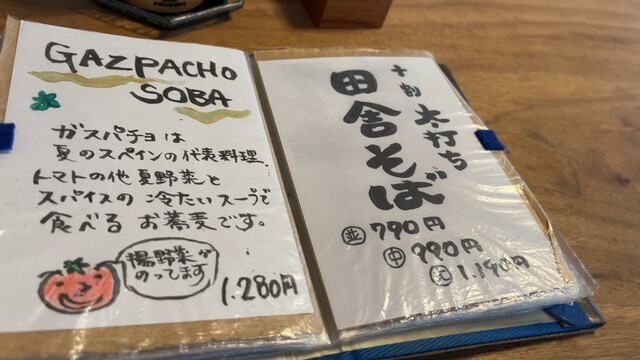 GAZPACHO
SOBA
ガスパチョは
夏のスペインの代表料理.
トマトの他 夏野菜と
スパイスの 冷たいスープで
食べる お蕎麦です。
揚野菜が
のってます
1.280円
十割 太打ち
田舎そば
並 790円
中 990円
大 1.190円